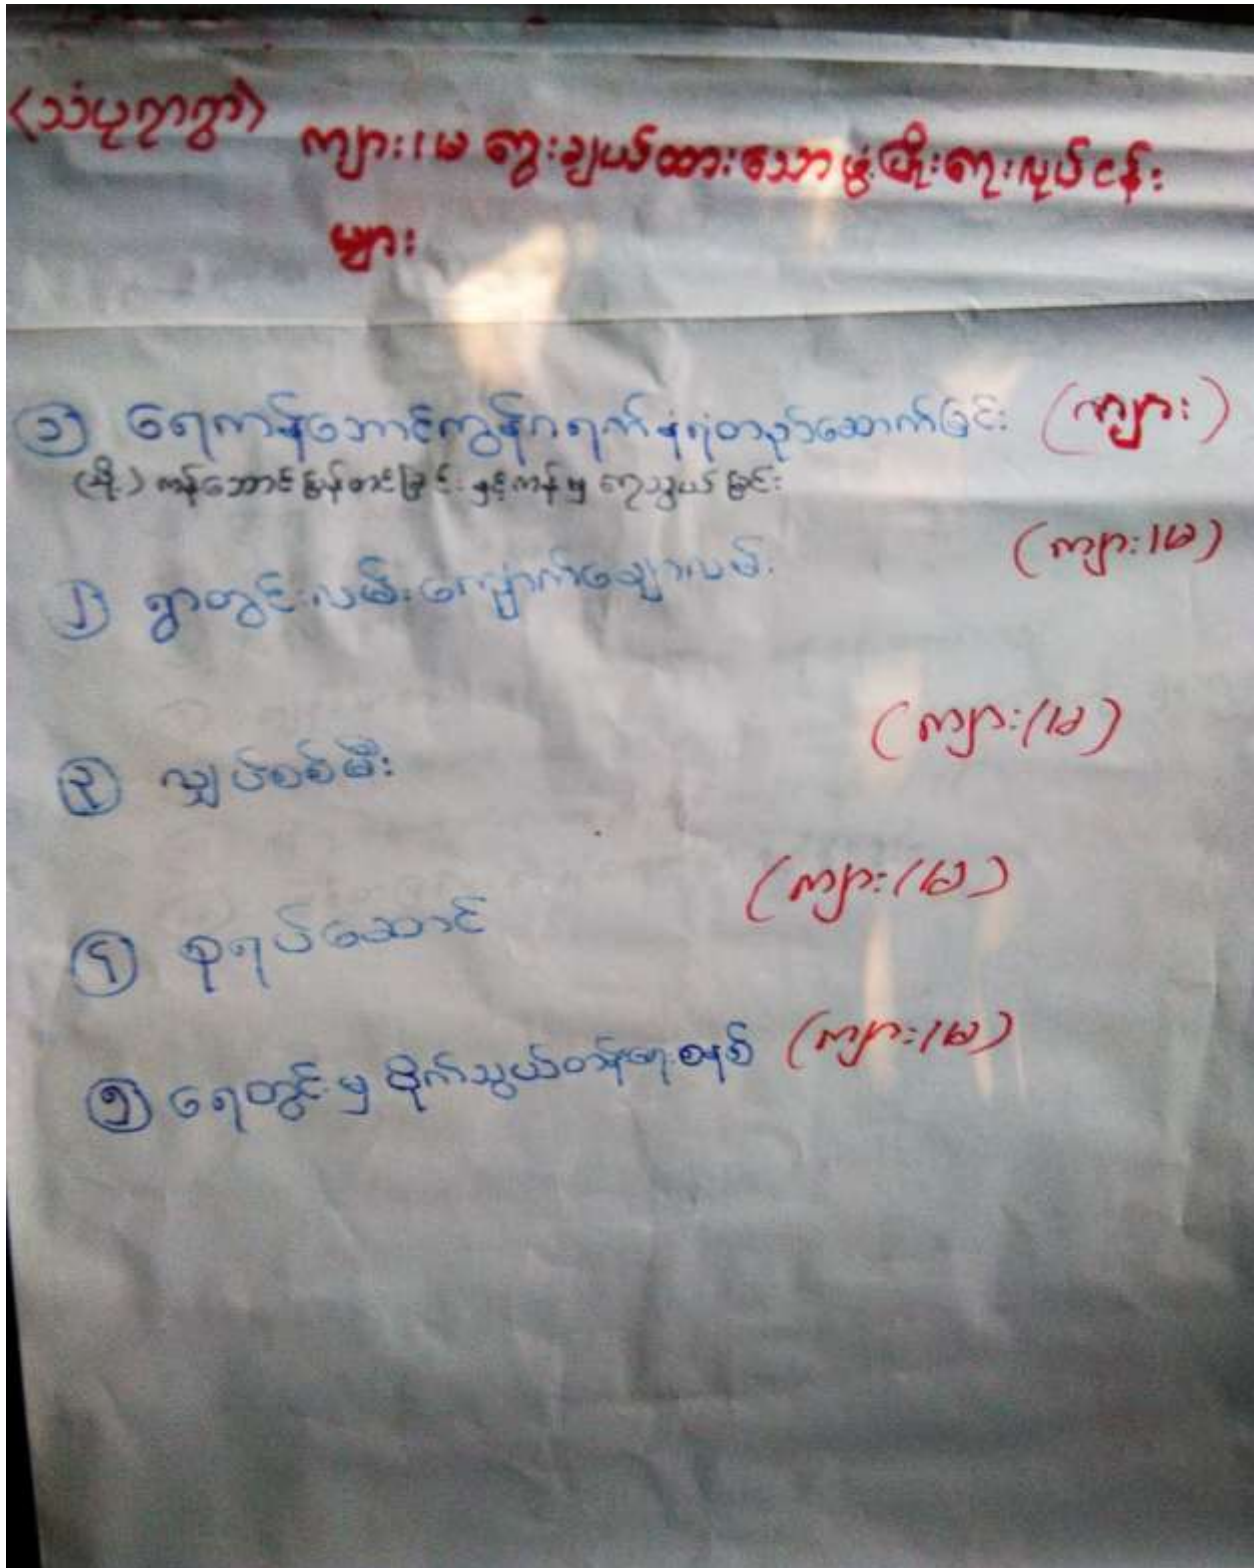 (သံပုရာရွာ) ကျား/မ ရွေးချယ်ထားသော ဖွံ့ဖြိုးရေးလုပ်ငန်း
များ
၁ ရေကန်ဘောင်ကွန်ကရစ်နံရံတည်ဆောက်ခြင်း (ကျား)
(သို့) ကန်ဘောင်မြှင့်တင်ခြင်း နှင့်ကန်မှ ရေသွယ်ခြင်း
၂ ရွာတွင်းလမ်း ကျောက်ချောလမ်း (ကျား/မ)
၃ လျှပ်စစ်မီး (ကျား/မ)
၄ စုရပ်ဆောင် (ကျား/မ)
၅ ရေတွင်းမှ ပိုက်သွယ်တန်းရေစနစ် (ကျား/မ)